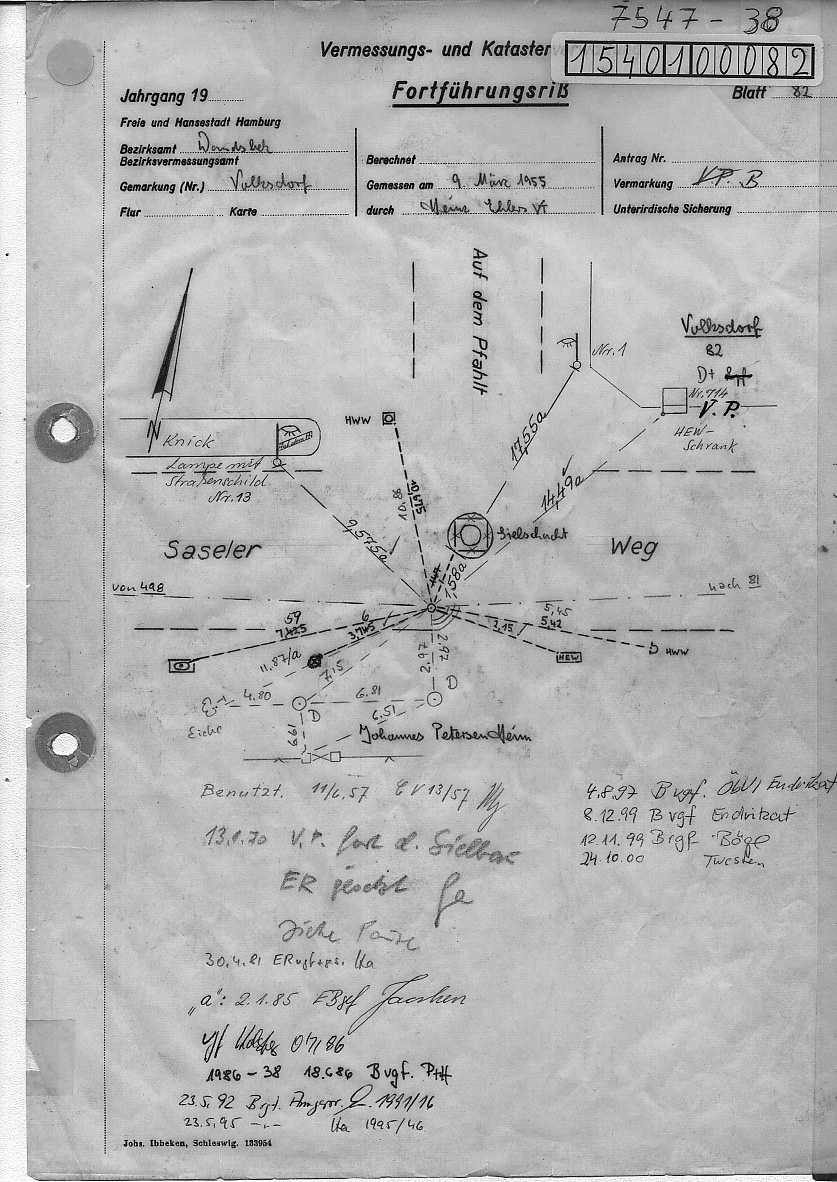 7547 - 38
Vermessungs- und Kataster
1540100082
Jahrgang 19
Fortführungsriß
Blatt 82
Freie und Hansestadt Hamburg
Bezirksamt Wandsbek
Bezirksvermessungsamt
Berechnet
Antrag Nr.
Gemarkung (Nr.) Volksdorf
Gemessen am 9. März 1955
Vermarkung V.P. B
Flur Karte
durch Heinz Ehlers
Unterirdische Sicherung
Auf dem Pfahlt
Volksdorf
82
D+
Nr. 1
Nr. 714
V. P.
HEW-
Schrank
N
Knick
HWW
Lampe mit
Straßenschild
Nr. 13
17,55a
14,49a
10,86
10,675
9,575a
Sielschacht
1,58a
Saseler
Weg
von 498
nach 81
59
7,425
6
3,745
5,45
5,42
2,15
HEW
HWW
11.87/a
7,15
2,97
2,97
4.80
6.81
D
D
6.51
6.61
Eiche
Johannes Petersen Heim
Benutzt. 11/6.57 EV 13/57
4.8.97 Bvgf. ÖbVI Endritzat
8.12.99 Bvgf Endritzat
12.11.99 Bvgf Böge
24.10.00 Twesten
V. P. fort d. Sielbau
ER gesetzt
Siehe Pause
30.4.81
"a": 2.1.85
07/86
1986 - 38 18.6.86 Bvgf.
23.5.92 1991/16
23.5.95 -.- 1995/46
Johs. Ibbeken, Schleswig. 133954